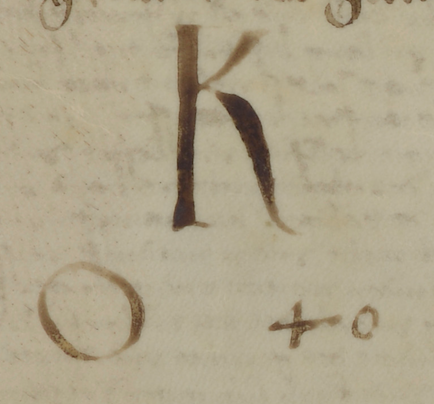 K
O + o